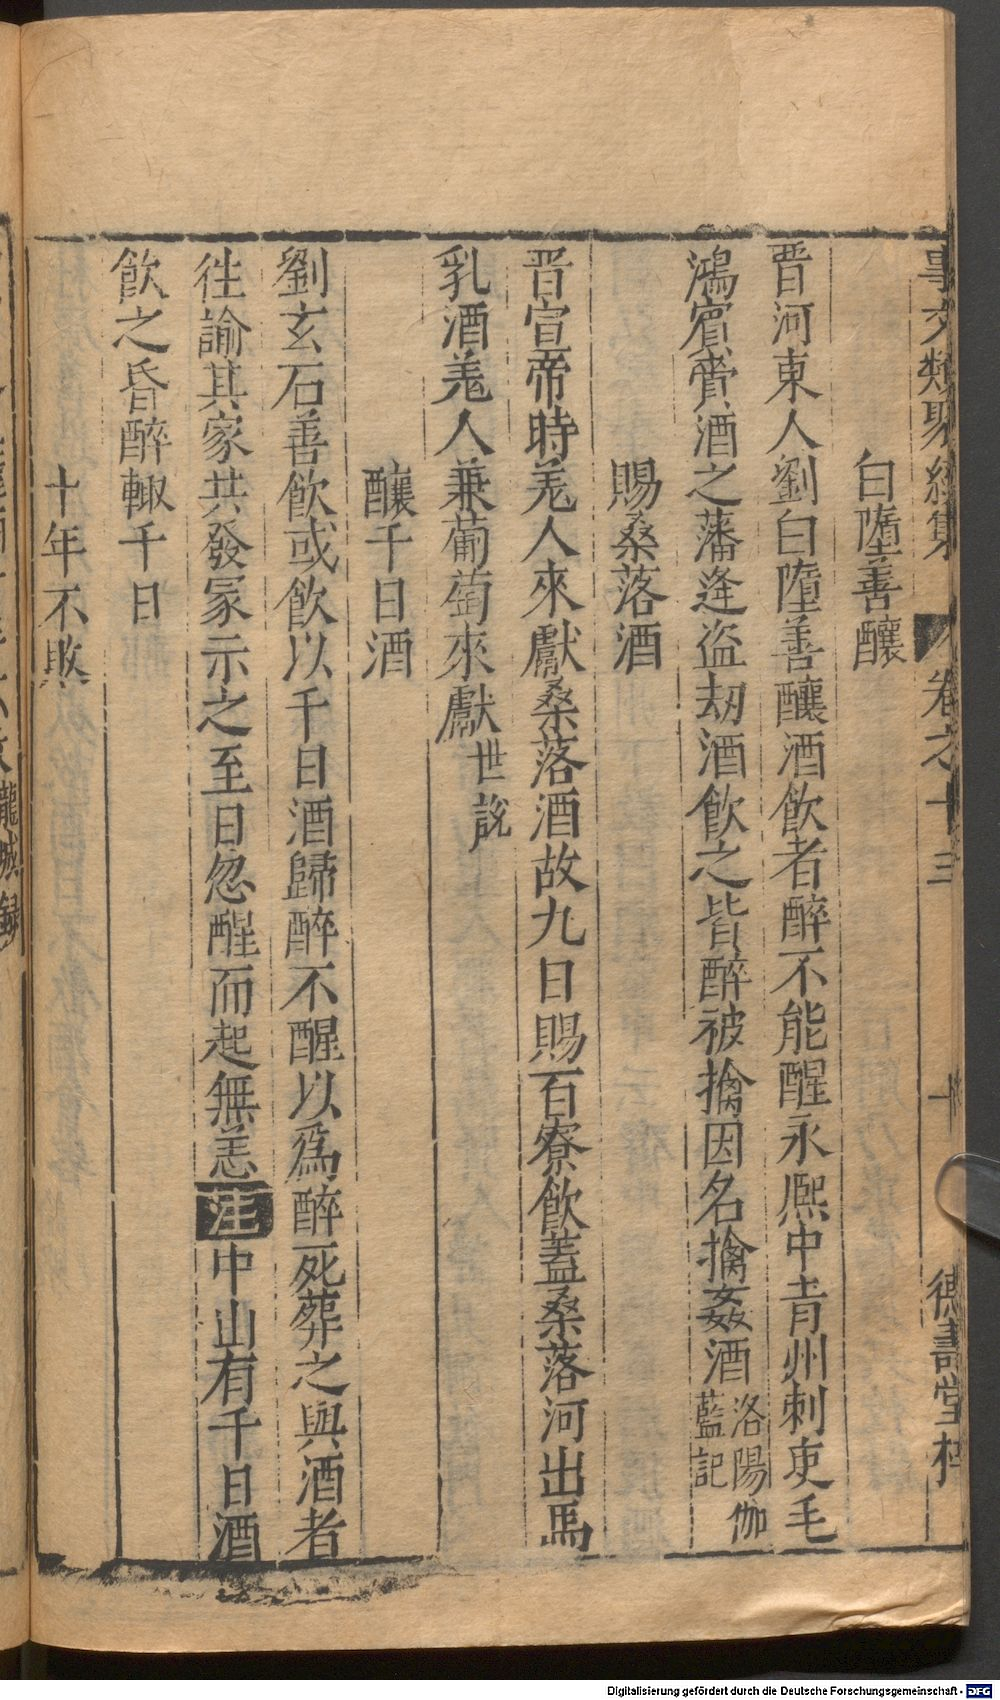 事文類聚續集 卷之十三 十 德壽堂梓
白墮善釀
晋河東人劉白墮善釀酒飲者醉不能醒永熈中青州刺吏毛
鴻賔賫酒之藩逢盗刼酒飲之皆醉被擒因名擒姦酒洛陽伽藍記
賜桑落酒
晋宣帝時羌人來獻桑落酒故九日賜百寮飲蓋桑落河出馬
乳酒羌人兼葡萄來獻世説
釀千日酒
劉玄石善飲或飲以千日酒歸醉不醒以爲醉死葬之與酒者
徃諭其家共發冡示之至日忽醒而起無恙注中山有千日酒
飲之昏醉輙千日
十年不敗
龍城録
Digitalisierung gefördert durch die Deutsche Forschungsgemeinschaft - DFG